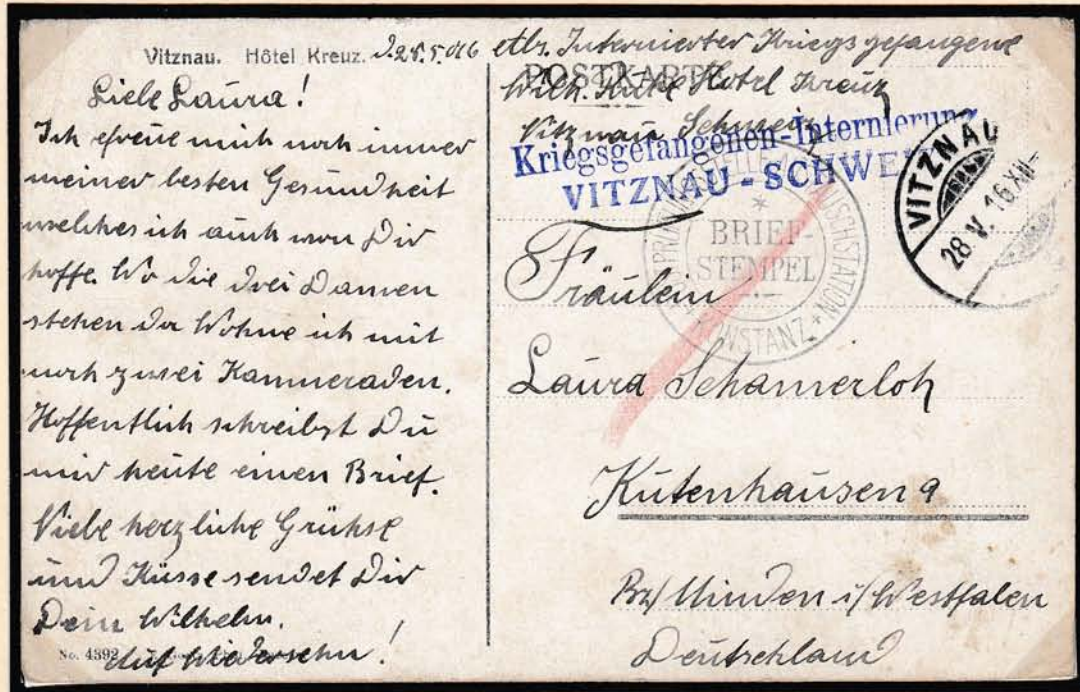 Vitznau. Hôtel Kreuz. d. 28.5.016
Liebe Laura!
Ich freue mich noch immer
meiner besten Gesundheit
welches ich auch von Dir
hoffe. Wo die drei Damen
stehen da Wohne ich mit
noch zwei Kammeraden.
Hoffentlich schreibst Du
mir heute einen Brief.
Viele herzliche Grühse
und Küsse sendet Dir
Dein Wilhelm.
Auf Wiedersehn!
No. 4392
Internierter Kriegsgefangene
POSTKARTE
Wilh. Hotel Kreuz
Vitznau Schweiz
Kriegsgefangenen-Internierung
VITZNAU - SCHWEIZ
VITZNAU
28.V.16.XII-
BRIEF-
STEMPEL
KONSTANZ
Fräulein
Laura Schamerloh
Kutenhausen 9
Bz/ Minden i/ Westfalen
Deutschland